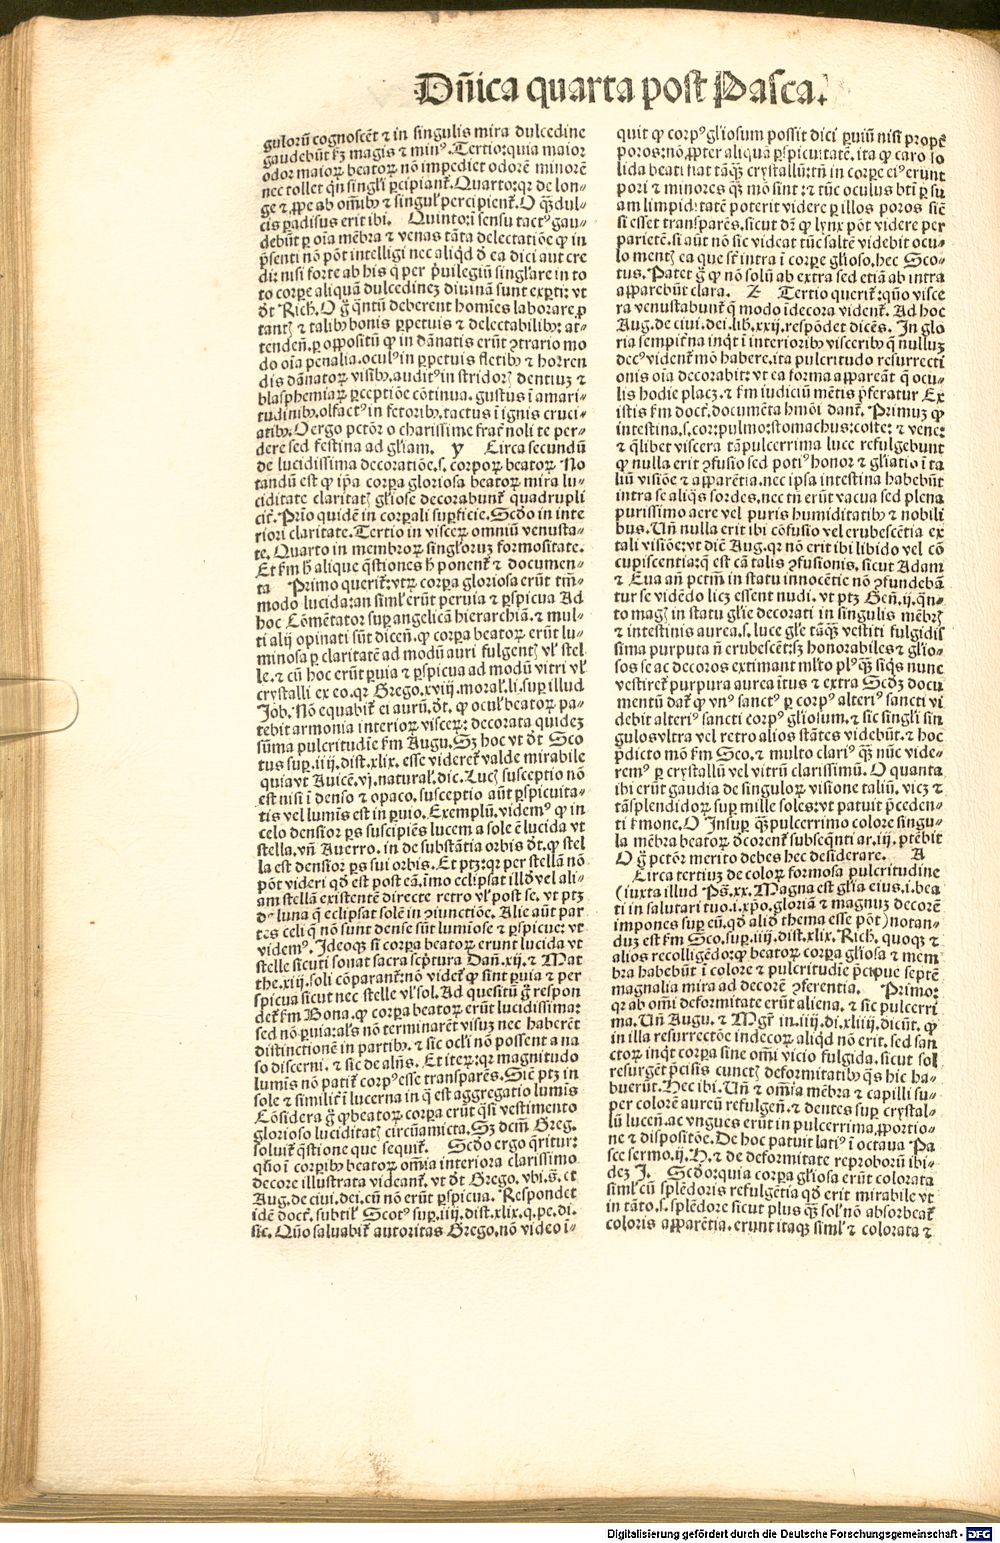 Dn̄ica quarta post Pasca.
gulorū cognoscēt ⁊ in singulis mira dulcedine
gaudebūt ſꝫ magis ⁊ minꝰ. Tertio: quia maior
odor maior beatoꝝ nō impediet odorē minorē
nec tollet qn̄ singli ꝑcipiant̄. Quarto: qꝛ de lon⸗
ge ⁊ ꝓpe ab om̄ibꝫ ⁊ singul̓ percipient̄. O q̄ꝫ dul⸗
cis ꝑadisus erit ibi. Quinto: ī sensu tactꝰ gau⸗
debūt ꝑ oīa mēbra ⁊ venas tāta delectatiōe ꝙ in
p̄senti nō pōt intelligi nec aliqd̄ ꝺ̄ ea dici aut cre
di: nisi forte ab his q̄ per p̄uilegiū singl̓are in to
to corpe aliquā dulcedineꝫ diuinā sunt exꝑti: vt
ꝺ̄t Rich. O g̊ q̄ntū deberent hom̄ies laborare ꝓ
tantꝭ ⁊ talibꝫ bonis ꝑpetuis ⁊ delectabilibꝫ: at⸗
tendeñ. ꝑ oppositū ꝙ in dānatis erūt ꝯtrario mo
do oīa penalia. oculꝰ in ꝑpetuis fletibꝫ ⁊ horren
dis dānatoꝝ visibꝫ. auditꝰ in stridorꝭ dentiuꝫ ⁊
blasphemiaꝝ ꝑceptiōe cōtinua. gustus ī amari⸗
tudinibꝫ. olfactꝰ in fetoribꝫ. tactus ī ignis cruci⸗
atibꝫ. O ergo petōꝛ o charissime frat̄ noli te per⸗
dere sed festina ad gl̓iam. y Circa secundū
de lucidissima decoratiōe. s. corpoꝝ beatoꝝ No
tandū est ꝙ ip̄a corꝑa gloriosa beatoꝝ mira lu⸗
ciditate claritatꝭ gl̓iose decorabunt̄ quadrupli
cit̄. Prīo quidē in corꝑali suꝑficie. Scd̄o in inte
riori claritate. Tertio in visceꝝ omniū venusta⸗
te. Quarto in membroꝝ singl̓oruꝫ formositate.
Et ẜm h̄ alique q̄stiones h̄ ponent̄ ⁊ documen⸗
ta Primo querit̄: vtꝝ corꝑa gloriosa erūt tm̄⸗
modo lucida: an siml̓ erūt peruia ⁊ ꝑspicua Ad
hoc Cōmētator suꝑ angelicā hierarchiā. ⁊ mul⸗
ti alij opinati sūt diceñ. ꝙ corꝑa beatoꝝ erūt lu⸗
minosa ꝑ claritatē ad modū auri fulgentꝭ vl̓ stel
le. ⁊ cū hoc erūt ꝑuia ⁊ ꝑspicua ad modū vitri vl̓
crystalli ex eo. qꝛ Grego. xviij. moral̓. li. suꝑ illud
Job. Nō equabit̄ ei aurū. ꝺ̄t. ꝙ ocul̓ beatoꝝ pa⸗
tebit armonia interioꝝ visceꝝ: decorata quideꝫ
sūma pulcritudīe ẜm Augu. Sꝫ hoc vt ꝺ̄t Sco
tus suꝑ. iiij. dist. xlix. esse videret̄ valde mirabile
quia vt Auicē. vj. natural̓. dic. Lucꝭ susceptio nō
est nisi ī denso ⁊ opaco. susceptio aūt ꝑspicuita⸗
tis vel lumīs est in ꝑuio. Exemplū. videmꝰ ꝙ in
celo densior ꝑs suscipiēs lucem a sole ē lucida vt
stella. vn̄ Auerro. in de substātia orbis ꝺ̄t. ꝙ stel
la est densior ꝑs sui orbis. Et ptꝫ: qꝛ per stellā nō
pōt videri qd̄ est post eā. īmo eclipsat ill̓d vel ali⸗
am stellā existentē directe retro vl̓ post se. vt ptꝫ
de luna q̄ eclipsat solē in ꝯiunctiōe. Alie aūt par
tes celi q̄ nō sunt dense sūt lumīose ⁊ ꝑspicue: vt
videmꝰ. Ideoqꝫ si corꝑa beatoꝝ erunt lucida vt
stelle sicuti sonat sacra scp̄tura Dañ. xij. ⁊ Mat
the. xiij. soli cōparant̄: nō videt̄ ꝙ sint ꝑuia ⁊ per
spicua sicut nec stelle vl̓ sol. Ad quesitū g̊ respon
det̄ ẜm Bona. ꝙ corꝑa beatoꝝ erūt lucidissima:
sed nō ꝑuia: al̓s nō terminarēt visuꝫ nec haberēt
distinctionē in partibꝫ. ⁊ sic ocl̓i nō possent a na
so discerni. ⁊ sic de alijs. Et iteꝝ: qꝛ magnitudo
lumīs nō patit̄ corpꝰ esse transparēs. Sic̄ ptꝫ in
sole ⁊ similit̄ ī lucerna in q̄ est aggregatio lumīs
Cōsidera g̊ ꝙ beatoꝝ corꝑa erūt q̄si vestimento
glorioso luciditatꝭ circūamicta. Sꝫ dcm̄ Greg.
soluit̄ q̄stione que sequit̄. Scd̄o ergo q̄ritur:
qūo ī corꝑibꝫ beatoꝝ om̄ia interiora clarissimo
decore illustrata videant̄. vt ꝺ̄t Grego. vbi. s̄. et
Aug. de ciui. dei. cū nō erūt ꝑspicua. Respondet
idē doct̄. subtil̓ Scotꝰ suꝑ. iiij. dist. xlix. q. pe. di.
sic. Qūo saluabit̄ autoritas Grego. nō video ī⸗
quit ꝙ corpꝰ gl̓iosum possit dici ꝑuiū nisi propt̄
poros: nō ꝓpter aliquā ꝑspicuitatē. ita ꝙ caro so
lida beati fiat tāqꝫ crystallū: tn̄ in corꝑe eiꝰ erunt
pori ⁊ minores qꝫ mō sint: ⁊ tūc oculus bt̄i ꝑ su
am limpiditatē poterit videre ꝑ illos poros sic̄
si esset transparēs. sicut dr̄ ꝙ lynx pōt videre per
parietē. si aūt nō sic videat tūc saltē videbit ocu⸗
lo mentꝭ ea que sūt intra ī corꝑe gl̓ioso. hec Sco⸗
tus. Patet g̊ ꝙ nō solū ab extra sed etiā ab intra
apparebūt clara. Z Tertio querit̄: qūo visce
ra venustabunt̄ q̄ modo īdecora vident̄. Ad hoc
Aug. de ciui. dei. lib. xxij. respōdet dicēs. In glo
ria sempit̄na inqt ī interioribꝫ visceribꝫ q̄ nulluꝫ
decꝰ vident̄ mō habere. ita pulcritudo resurrecti
onis oīa decorabit: vt ea forma appareāt q̄ ocu⸗
lis hodie placꝫ. ⁊ ẜm iudiciū mētis p̄feratur Ex
istis ẜm doct̄. documēta hm̄oi dant̄. Primuꝫ ꝙ
intestina. s. cor: pulmo: stomachus: coste: ⁊ vene:
⁊ q̄libet viscera tā pulcerrima luce refulgebunt
ꝙ nulla erit ꝯfusio sed potiꝰ honor ⁊ gl̓iatio ī ta
liū visiōe ⁊ apparētia. nec ipsa intestina habebūt
intra se aliq̄s sordes. nec tn̄ erūt vacua sed plena
purissimo aere vel puris humiditatibꝫ ⁊ nobili
bus. Vn̄ nulla erit ibi cōfusio vel erubescētia ex
tali visiōe: vt dic̄ Aug. qꝛ nō erit ibi libido vel cō
cupiscentia: q̄ est cā talis ꝯfusionis. sicut Adam
⁊ Eua an̄ petm̄ in statu innocētie nō ꝯfundebā
tur se vidēdo licꝫ essent nudi. vt ptꝫ Geñ. ij. q̄n⸗
to magꝭ in statu gl̓ie decorati in singulis mēbrꝭ
⁊ intestinis aurea. s. luce gl̓e tāqꝫ vestiti fulgidis
sima purpura n̄ erubescēt: sꝫ honorabiles ⁊ gl̓io⸗
sos se ac decoros extimant ml̓to plꝰ qꝫ siq̄s nunc
vestiret̄ purpura aurea ītus ⁊ extra Scd̄ꝫ docu
mentū dat̄ ꝙ vnꝰ sanctꝰ ꝑ corpꝰ alteriꝰ sancti vi
debit alteriꝰ sancti corpꝰ gl̓iosum. ⁊ sic singl̓i sin
gulos vltra vel retro alios stātes videbūt. ⁊ hoc
p̄dicto mō ẜm Sco. ⁊ multo clariꝰ qꝫ nūc vide⸗
remꝰ ꝑ crystallū vel vitrū clarissimū. O quanta
ibi erūt gaudia de singuloꝝ visione taliū. vicꝫ ⁊
tā splendidoꝝ suꝑ mille soles: vt patuit p̄ceden⸗
ti ẜmone. O Insuꝑ qꝫ pulcerrimo colore singu⸗
la mēbra beatoꝝ ꝺ̄corent̄ subseqn̄ti ar. iij. ptēbit
O g̊ petōꝛ merito debes hec desiderare. A
Circa tertiuꝫ de coloꝝ formosa pulcritudine
(iuxta illud Ps. xx. Magna est gl̓ia eius. i. bea
ti in salutari tuo. i. xp̄o. gloriā ⁊ magnuꝫ decorē
impones suꝑ eū. qd̄ alid̄ thema esse pōt) notan⸗
duꝫ est ẜm Sco. suꝑ. iiij. dist. xlix. Rich. quoqꝫ ⁊
alios recolligēdo: ꝙ beatoꝝ corꝑa gl̓iosa ⁊ mem
bra habebūt ī colore ⁊ pulcritudīe p̄cipue septē
magnalia mira ad decorē ꝯferentia. Primo:
qꝛ ab om̄i deformitate erūt aliena. ⁊ sic pulcerri
ma. Vn̄ Augu. ⁊ Mgr̄ in. iiij. di. xliiij. dicūt. ꝙ
in illa resurrectōe indecoꝝ aliqd̄ nō erit. sed san
ctoꝝ inqt corꝑa sine om̄i vicio fulgida. sicut sol
resurgēt p̄cisis cunctꝭ deformitatibꝫ q̄s hic ha⸗
buerūt. Hec ibi. Vn̄ ⁊ om̄ia mēbra ⁊ capilli su⸗
per colorē aureū refulgeñ. ⁊ dentes suꝑ crystal⸗
lū luceñ. ac vngues erūt in pulcerrima ꝓportio⸗
ne ⁊ dispositōe. De hoc patuit latiꝰ ī octaua Pa
sce sermo. ij. H. ⁊ de deformitate reproborū ibi⸗
dez J. Scd̄o: quia corꝑa gl̓iosa erūt colorata
siml̓ cū splēdoris refulgētia qd̄ erit mirabile vt
in tāto. s. splēdore sicut plus qꝫ sol̓ nō absorbeat̄
coloris apparētia. erunt itaqꝫ siml̓ ⁊ colorata ⁊
Digitalisierung gefördert durch die Deutsche Forschungsgemeinschaft - DFG